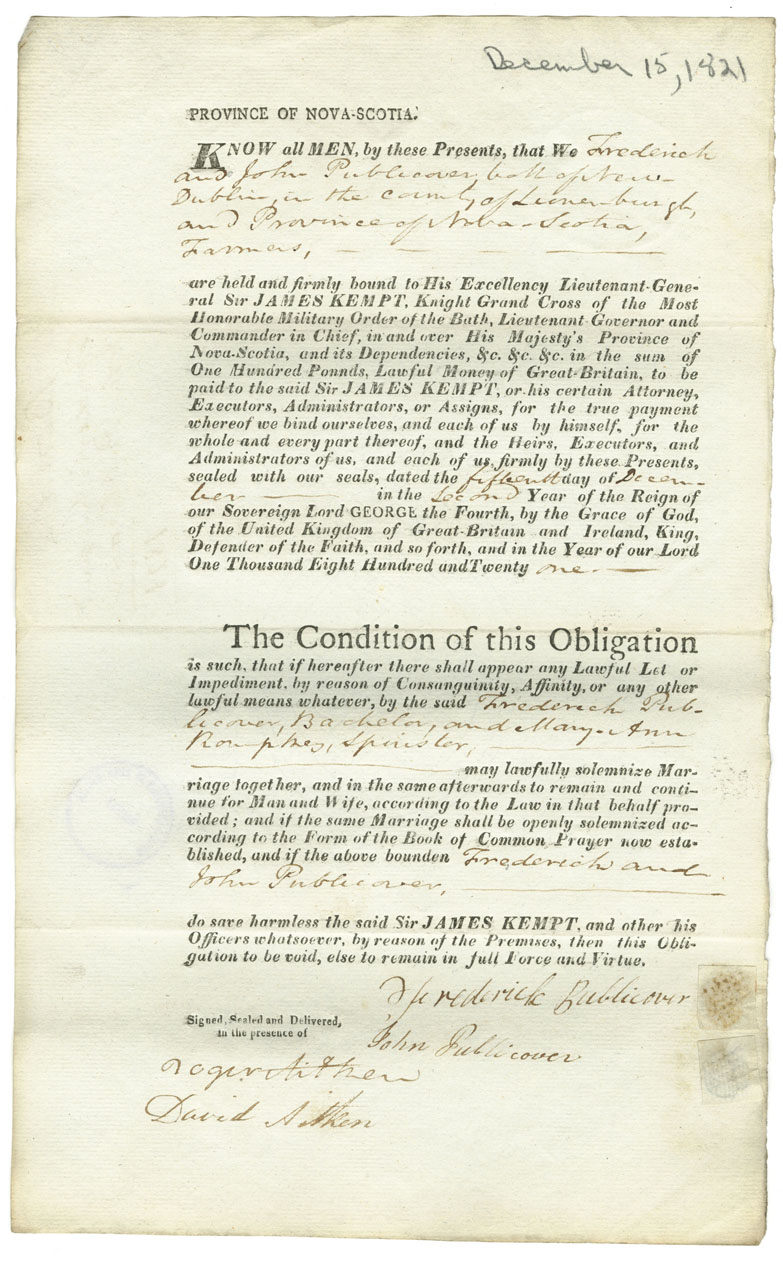 December 15, 1821
PROVINCE OF NOVA-SCOTIA.
KNOW all MEN, by these Presents, that We Frederick
and John Publicover, both of New-
Dublin, in the county of Lunenburgh,
and Province of Nova-Scotia,
Farmers,
are held and firmly bound to His Excellency Lieutenant-Gene-
ral Sir JAMES KEMPT, Knight Grand Cross of the Most
Honorable Military Order of the Bath, Lieutenant-Governor and
Commander in Chief, in and over His Majesty's Province of
Nova-Scotia, and its Dependencies, &c. &c. &c. in the sum of
One Hundred Ponnds, Lawful Money of Great-Britain, to be
paid to the said Sir JAMES KEMPT, or his certain Attorney,
Executors, Administrators, or Assigns, for the true payment
whereof we bind ourselves, and each of us by himself, for the
whole and every part thereof, and the Heirs, Executors, and
Administrators of us, and each of us, firmly by these Presents,
sealed with our seals, dated the fifteenth day of Decem-
ber in the second Year of the Reign of
our Sovereign Lord GEORGE the Fourth, by the Grace of God,
of the United Kingdom of Great-Britain and Ireland, King,
Defender of the Faith, and so forth, and in the Year of our Lord
One Thousand Eight Hundred and Twenty one.
The Condition of this Obligation
is such, that if hereafter there shall appear any Lawful Let or
Impediment, by reason of Consanguinity, Affinity, or any other
lawful means whatever, by the said Frederick Pub-
licover, Bachelor, and Mary-Ann
Romphey, Spinster,
may lawfully solemnize Mar-
riage together, and in the same afterwards to remain and conti-
nue for Man and Wife, according to the Law in that behalf pro-
vided; and if the same Marriage shall be openly solemnized ac-
cording to the Form of the Book of Common Prayer now esta-
blished, and if the above bounden Frederick and
John Publicover,
do save harmless the said Sir JAMES KEMPT, and other his
Officers whatsoever, by reason of the Premises, then this Obli-
gation to be void, else to remain in full Force and Virtue.
Frederick Publicover
Signed, Sealed and Delivered,
in the presence of
John Publicover
Roger Aitken
David Aitken